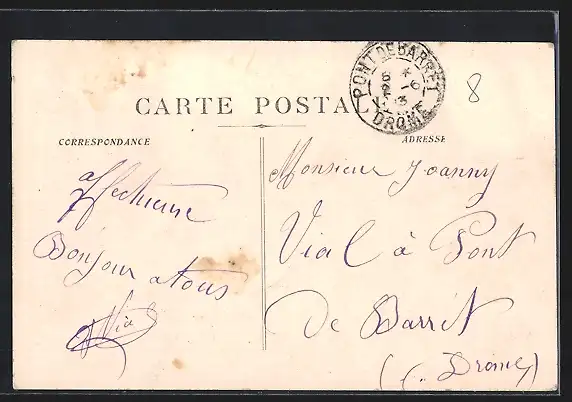 CARTE POSTALE
PONT DE BARRET
DROME
8
CORRESPONDANCE
ADRESSE
Affectueux
Bonjour a tous
Vial
Monsieur Joanny
Vial à Pont
De Barrêt
(Drome)